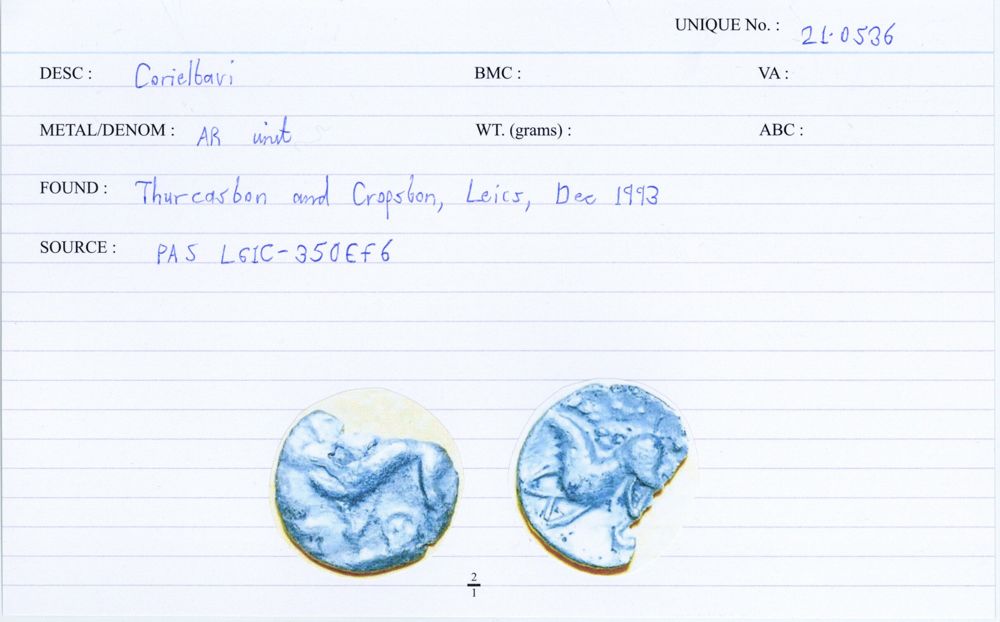 UNIQUE No. : 21.0536
DESC : Corieltavi BMC : VA :
METAL/DENOM : AR unit WT. (grams) : ABC :
FOUND : Thurcaston and Cropston, Leics, Dec 1993
SOURCE : PAS LEIC-350EF6
2
1